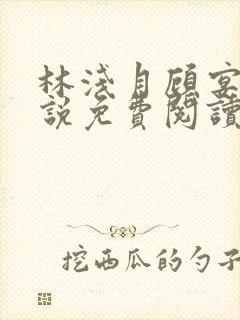 林淺自顧宴
說免費閱讀
挖西瓜的勺子